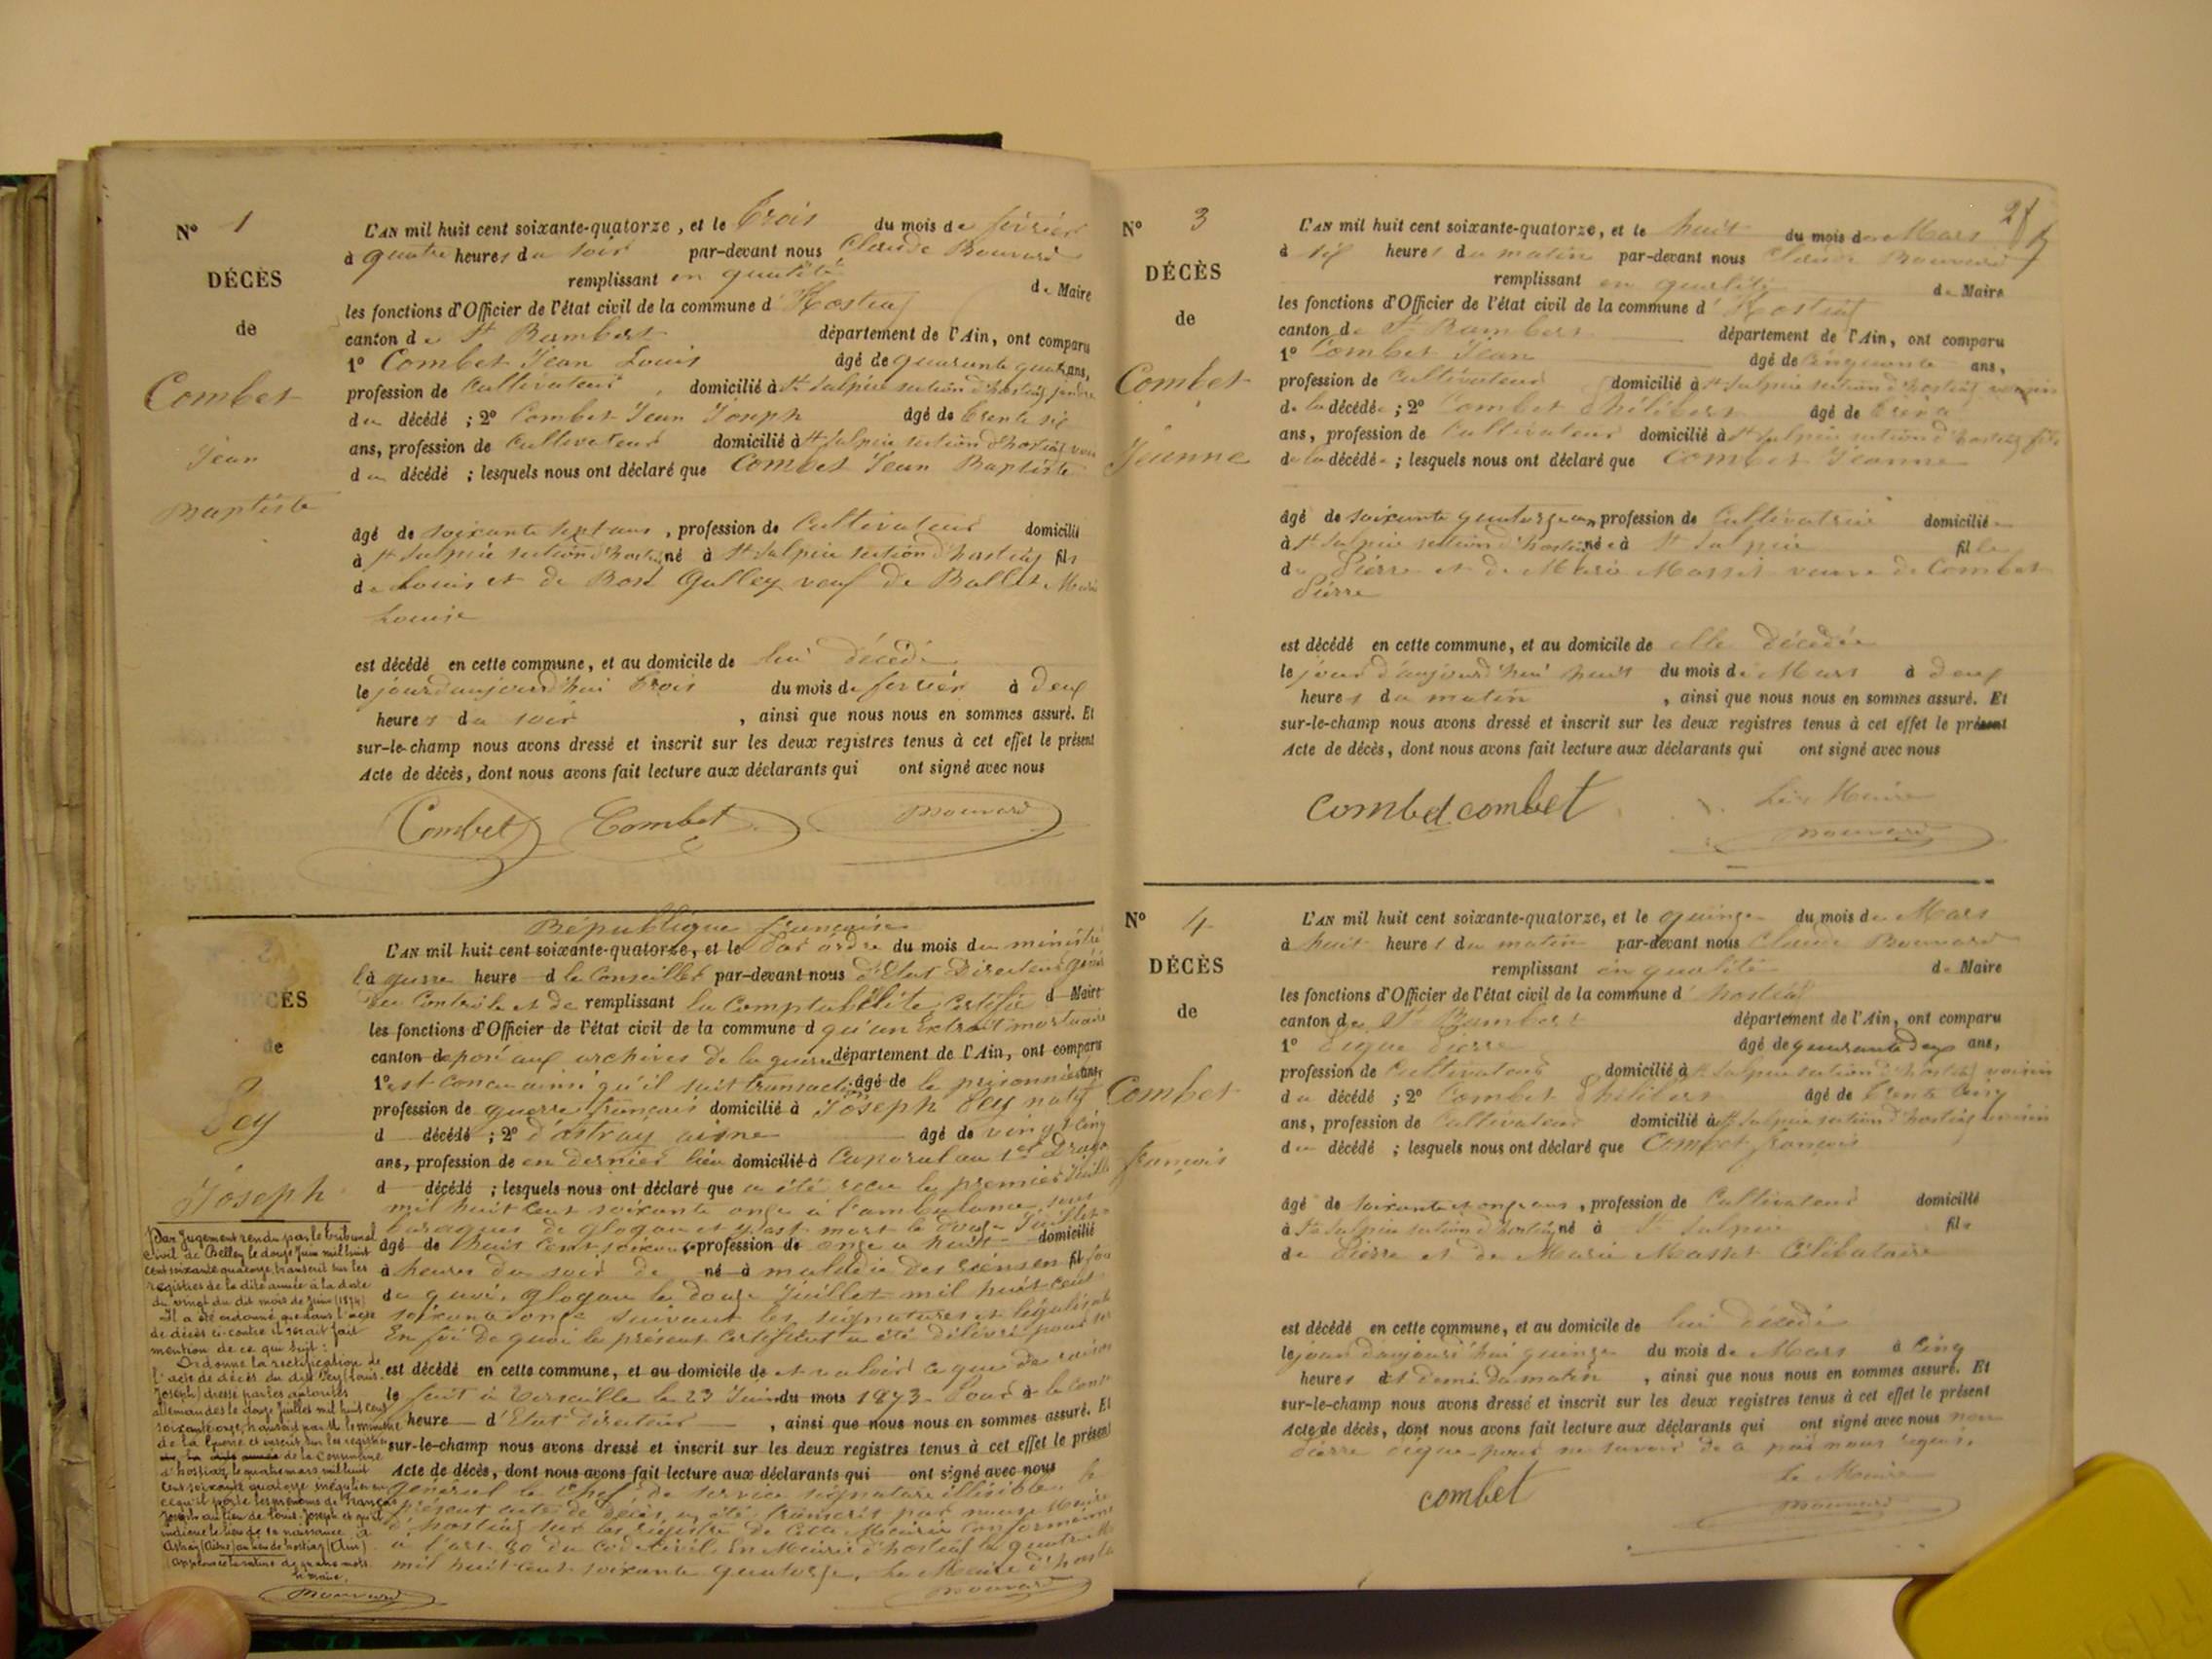 N° 1
DÉCÈS
de
Combet
Jean
Baptiste
L'AN mil huit cent soixante-quatorze, et le trois du mois de février
à quatre heures du soir par-devant nous Claude Bouvard
remplissant en qualité de Maire
les fonctions d'Officier de l'état civil de la commune d'Hostiaz
canton de St Rambert département de l'Ain, ont comparu
1° Combet Jean Louis âgé de quarante quatre ans,
profession de Cultivateur, domicilié à St Sulpice section d'hostiaz gendre
du décédé ; 2° Combet Jean Joseph âgé de trente six
ans, profession de Cultivateur domicilié à St Sulpice section d'hostiaz
du décédé ; lesquels nous ont déclaré que Combet Jean Baptiste
âgé de soixante sept ans, profession de Cultivateur domicilié
à St Sulpice section d'hostiaz né à St Sulpice section d'hostiaz fils
de Louis et de Rose Gulley veuf de Ballet Marie
Louise
est décédé en cette commune, et au domicile de lui décédé
le jour d'aujourd'hui trois du mois de février à deux
heures du soir, ainsi que nous nous en sommes assuré. Et
sur-le-champ nous avons dressé et inscrit sur les deux registres tenus à cet effet le présent
Acte de décès, dont nous avons fait lecture aux déclarants qui ont signé avec nous
Combet Combet Bouvard
DÉCÈS
de
Pey
Joseph
République française
L'AN mil huit cent soixante-quatorze, et le Par ordre du mois du ministre
la guerre heure d le Conseiller par-devant nous d'Etat Directeur géné
du Contrôle et de remplissant la Comptabilité, Certifie d Maire
les fonctions d'Officier de l'état civil de la commune d qu'un Extrait mortuaire
canton de posé aux archives de la guerre département de l'Ain, ont comparu
1° est concu ainsi qu'il suit âgé de le prisonnier ans,
profession de guerre français domicilié à Joseph Pey natif
d décédé ; 2° d'astray aisne âgé de vingt cinq
ans, profession de en dernier lieu domicilié à Caporal au 1er
d décédé ; lesquels nous ont déclaré que a été recu le premier Juillet
mil huit cent soixante onze à l'ambulance
baraques de glogau et y est mort le douze Juillet
âgé de huit cent soixante profession de onze a huit domicilié
à heures du soir de né à maladie des fil
de glogau le douze Juillet mil huit cent
soixante onze suivant les signatures et
En foi de quoi le présent certificat a été délivré pour
est décédé en cette commune, et au domicile de et valoir ce que de raison
le fait à Versaille le 23 Juin du mois 1873. Pour à le Cons
heure d'Etat Directeur, ainsi que nous nous en sommes assuré. Et
sur-le-champ nous avons dressé et inscrit sur les deux registres tenus à cet effet le présent
Acte de décès, dont nous avons fait lecture aux déclarants qui ont signé avec nous
général le Chef de service signature illisible. le
présent acte de décès a été transcrit par nous Maire
d'hostiaz sur les registre de Cette Mairie Conformément
a l'art 80 du Code Civil. En Mairie d'hostiaz le quatre
mil huit cent soixante quatorze. Le Maire d'hostiaz
Bouvard
Par Jugement rendu par le tribunal
Civil de Belley le douze Juin mil huit
cent soixante quatorze, transcrit sur les
registres de la dite année à la date
du vingt du dit mois de Juin (1874)
Il a été ordonné que dans l'acte
de décès ci-contre il serait fait
mention de ce qui suit :
Ordonne la rectification de
l'acte de décès du dit Pey (Louis
Joseph) dressé par les autorités
allemandes le douze Juillet mil huit cent
soixante onze, transcrit par M. le ministre
de la Guerre et inscrit sur les registres
de la Commune
d'hostiaz le quatre mars mil huit
cent soixante quatorze
ce qu'il porte les prénoms de François
Joseph au lieu de Louis Joseph et qu'il
indique le lieu de sa naissance à
Astray (Aisne) au lieu de hostiaz (Ain)
Le Maire,
Bouvard
N° 3
DÉCÈS
de
Combet
Jeanne
L'AN mil huit cent soixante-quatorze, et le huit du mois de Mars
à six heures du matin par-devant nous Claude Bouvard
remplissant en qualité de Maire
les fonctions d'Officier de l'état civil de la commune d'Hostiaz
canton de St Rambert département de l'Ain, ont comparu
1° Combet Jean âgé de Cinquante ans,
profession de Cultivateur domicilié à St Sulpice section d'hostiaz voisin
de la décédée ; 2° Combet Philibert âgé de trente
ans, profession de Cultivateur domicilié à St Sulpice section d'hostiaz fils
de la décédée ; lesquels nous ont déclaré que Combet Jeanne
âgé de soixante quatorze ans profession de Cultivatrice domiciliée
à St Sulpice section d'hostiaz née à St Sulpice fille
de Pierre et de Marie Masset veuve de Combet
Pierre
est décédé en cette commune, et au domicile de elle décédée
le jour d'aujourd'hui huit du mois de Mars à deux
heures du matin, ainsi que nous nous en sommes assuré. Et
sur-le-champ nous avons dressé et inscrit sur les deux registres tenus à cet effet le présent
Acte de décès, dont nous avons fait lecture aux déclarants qui ont signé avec nous
combet combet Le Maire
Bouvard
N° 4
DÉCÈS
de
Combet
françois
L'AN mil huit cent soixante-quatorze, et le quinze du mois de Mars
à huit heures du matin par-devant nous Claude Bouvard
remplissant en qualité de Maire
les fonctions d'Officier de l'état civil de la commune d'hostiaz
canton de St Rambert département de l'Ain, ont comparu
1° Pierre âgé de quarante deux ans,
profession de Cultivateur domicilié à St Sulpice section d'hostiaz voisin
du décédé ; 2° Combet Philibert âgé de trente cinq
ans, profession de Cultivateur domicilié à St Sulpice section d'hostiaz voisin
du décédé ; lesquels nous ont déclaré que Combet françois
âgé de soixante et onze ans, profession de Cultivateur domicilié
à St Sulpice section d'hostiaz né à St Sulpice fils
de Pierre et de Marie Masset Célibataire
est décédé en cette commune, et au domicile de lui décédé
le jour d'aujourd'hui quinze du mois de Mars à Cinq
heures et demi du matin, ainsi que nous nous en sommes assuré. Et
sur-le-champ nous avons dressé et inscrit sur les deux registres tenus à cet effet le présent
Acte de décès, dont nous avons fait lecture aux déclarants qui ont signé avec nous non
Pierre pour ne savoir de a par nous requis.
combet Le Maire
Bouvard